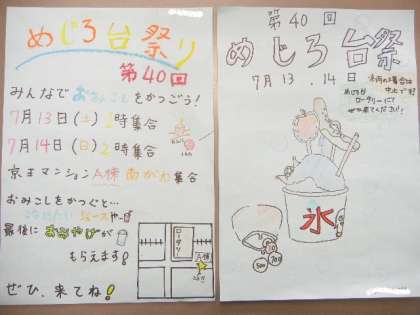 めじろ台祭り
第40回
みんなでおみこしをかつごう!
7月13日(土)2時集合
7月14日(日)2時集合
京王マンションA棟南がわ集合
おみこしをかつぐと…
冷たいジュースや
最後におみやげが
もらえます!
ロータリー
A棟
ぜひ、来てね!
第40回
めじろ台祭
7月13.14日
雨の場合は
中止です!
めじろ台
ロータリーにて
ぜひ来てください!
氷
500
100